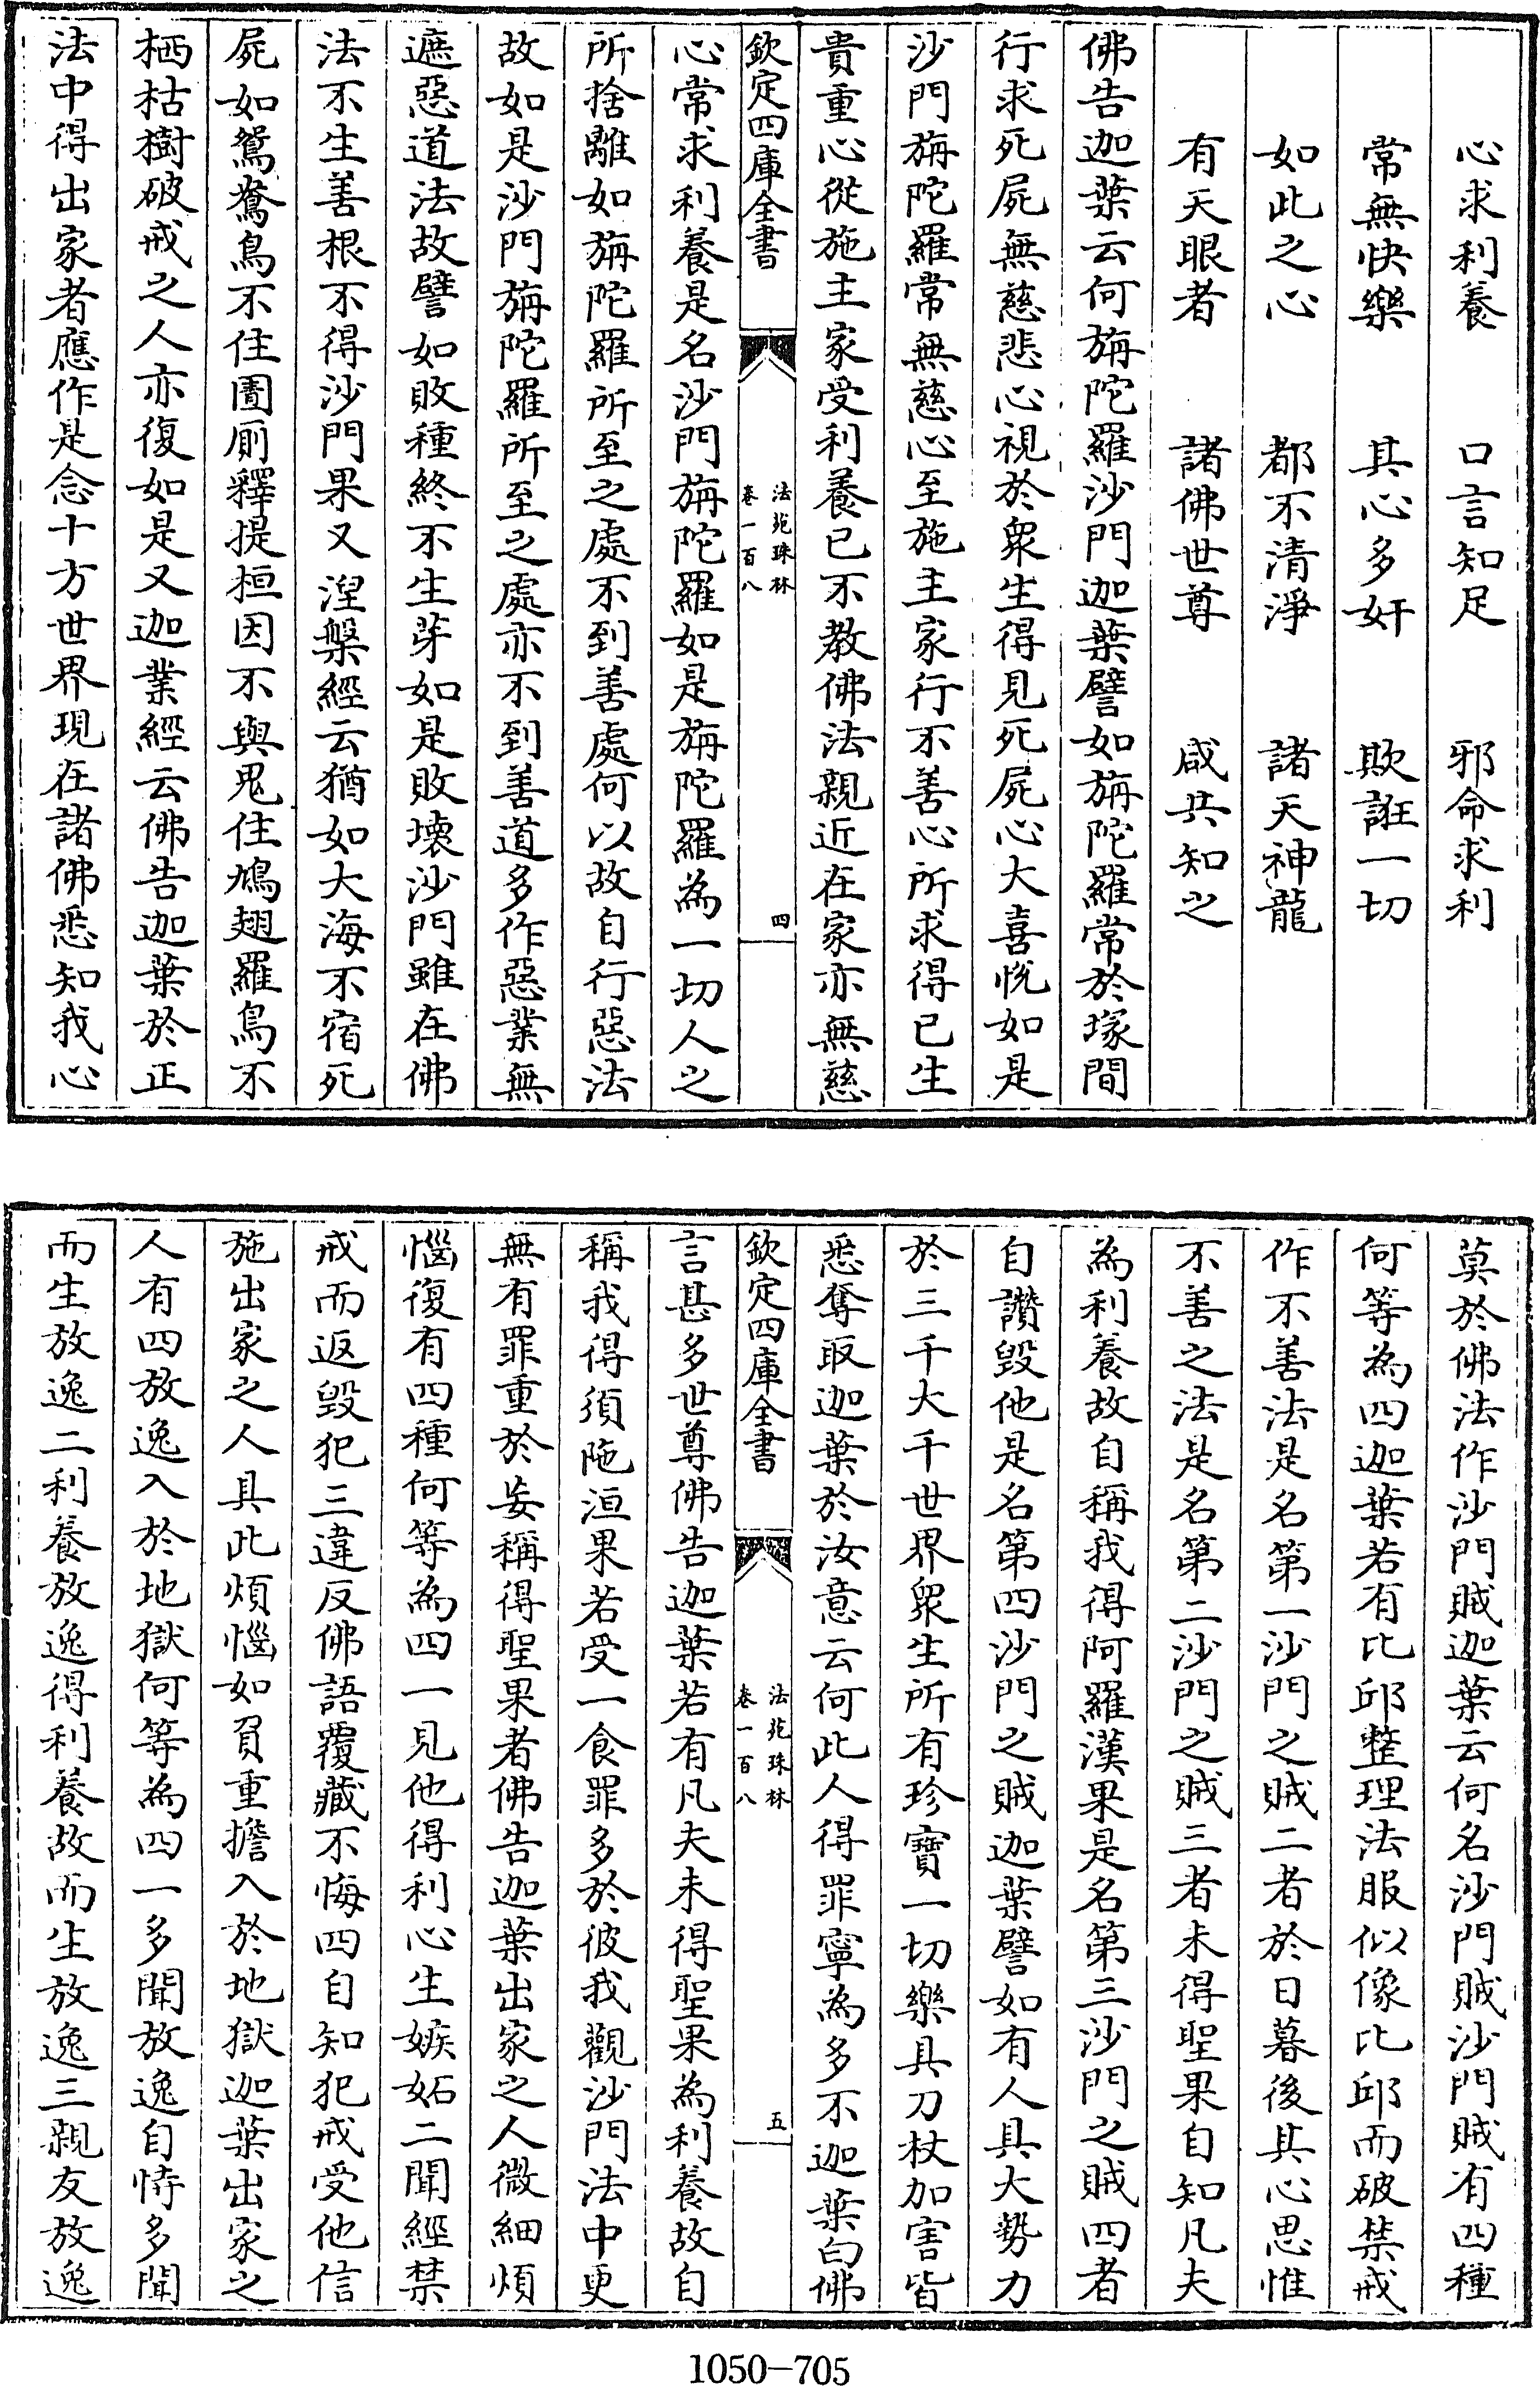 心求利養　口言知足　邪命求利
常無快樂　其心多奸　欺誑一切
如此之心　都不清淨　諸天神龍
有天眼者　諸佛世尊　咸共知之
佛告迦葉云何旃陀羅沙門迦葉譬如旃陀羅常於塚間
行求死屍無慈悲心視於衆生得見死屍心大喜恱如是
沙門旃陀羅常無慈心至施主家行不善心所求得已生
貴重心從施主家受利養已不教佛法親近在家亦無慈
欽定四庫全書
法苑珠林
卷一百八
四
心常求利養是名沙門旃陀羅如是旃陀羅為一切人之
所捨離如旃陀羅所至之處不到善處何以故自行惡法
故如是沙門旃陀羅所至之處亦不到善道多作惡業無
遮惡道法故譬如敗種終不生芽如是敗壞沙門雖在佛
法不生善根不得沙門果又涅槃經云猶如大海不宿死
屍如鴛鴦鳥不住圊厠釋提桓因不與鬼住鳩翅羅鳥不
栖枯樹破戒之人亦復如是又迦葉經云佛告迦葉於正
法中得出家者應作是念十方世界現在諸佛悉知我心
莫於佛法作沙門賊迦葉云何名沙門賊沙門賊有四種
何等為四迦葉若有比邱整理法服似像比邱而破禁戒
作不善法是名第一沙門之賊二者於日暮後其心思惟
不善之法是名第二沙門之賊三者未得聖果自知凡夫
為利養故自稱我得阿羅漢果是名第三沙門之賊四者
自讚毀他是名第四沙門之賊迦葉譬如有人具大勢力
於三千大千世界衆生所有珍寶一切樂具刀杖加害皆
悉奪取迦葉於汝意云何此人得罪寧為多不迦葉白佛
欽定四庫全書
法苑珠林
卷一百八
五
言甚多世尊佛告迦葉若有凡夫未得聖果為利養故自
稱我得須陁洹果若受一食罪多於彼我觀沙門法中更
無有罪重於妄稱得聖果者佛告迦葉出家之人微細煩
惱復有四種何等為四一見他得利心生嫉妬二聞經禁
戒而返毀犯三違反佛語覆藏不悔四自知犯戒受他信
施出家之人具此煩惱如負重擔入於地獄迦葉出家之
人有四放逸入於地獄何等為四一多聞放逸自恃多聞
而生放逸二利養放逸得利養故而生放逸三親友放逸
1050-705